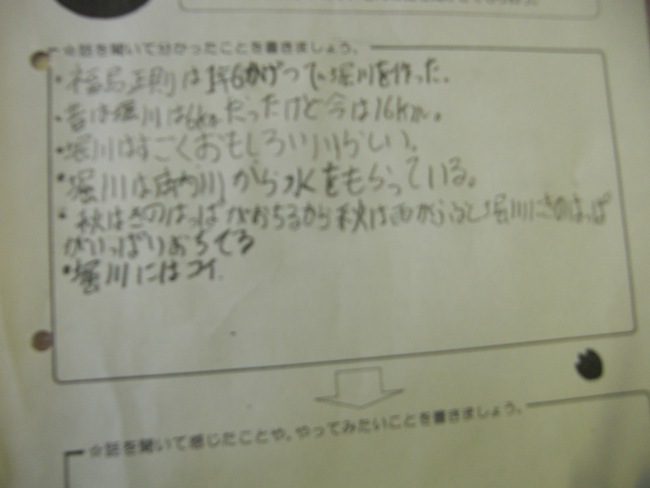 ☆話を聞いて分かったことを書きましょう。
・福島正則は約6かげつで堀川を作った。
・昔は堀川は6kmだったけど今は16km。
・堀川はすごくおもしろい川らしい。
・堀川は庄内川から水をもらっている。
・秋はきのはっぱがおちるから秋は雨がふると堀川にきのはっぱ
がいっぱいおちてる
・堀川にはコイ
☆話を聞いて感じたことや、やってみたいことを書きましょう。